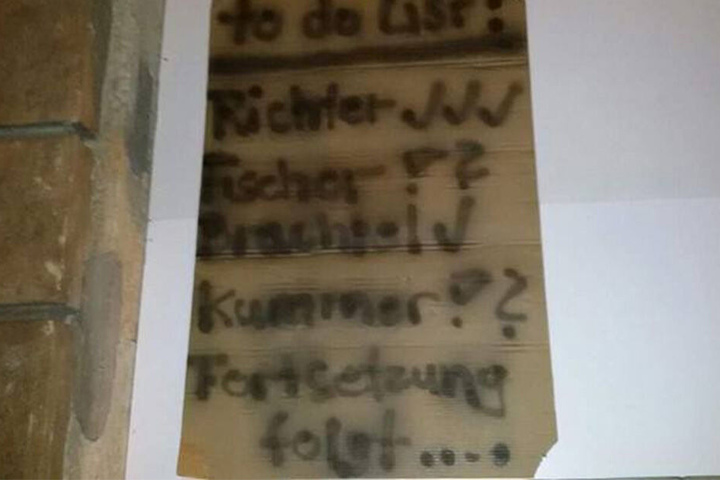 to do List:
Richter ✓✓✓
Fischer ??
✓
Kummer ??
Fortsetzung
folgt....